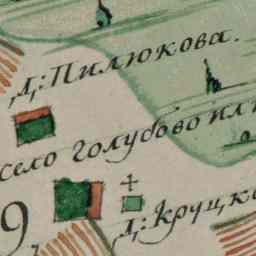 Д: Пилюкова.
село голубово ил
9,
Д: Круцко